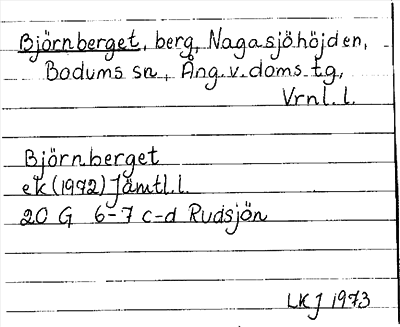 Björnberget, berg, Nagasjöhöjden,
Bodums sn, Ång.v.doms.tg,
Vrnl.l.
Björnberget
ek(1972) Jämtl.l.
20 G 6-7 c-d Rudsjön
LKJ 1973